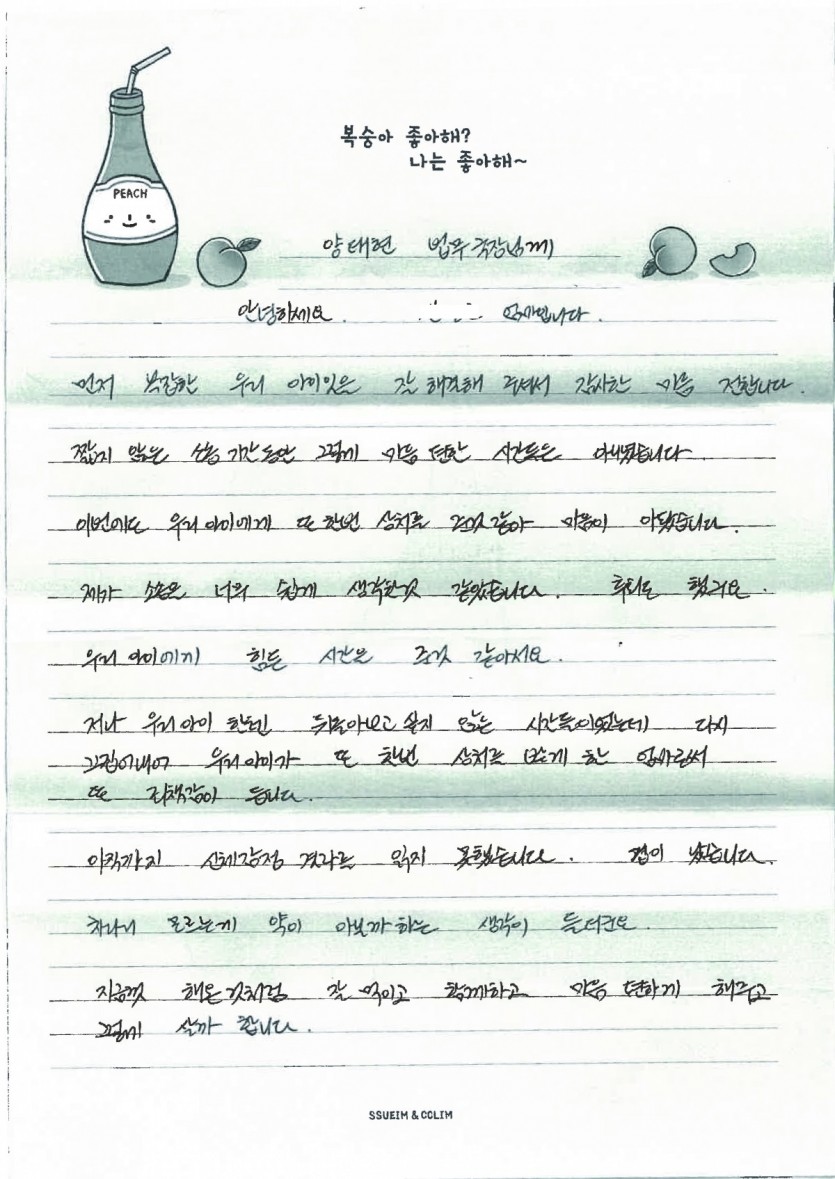 복숭아 좋아해?
나는 좋아해~
PEACH
양태현 법무국장님께
안녕하세요. 엄마입니다.
먼저 복잡한 우리 아이일은 잘 해결해 주셔서 감사한 마음 전합니다.
짧지 않은 소송 기간동안 그렇게 마음 편한 시간들은 아니였습니다.
이번에도 우리 아이에게 또 한번 상처를 준것 같아 마음이 아팠습니다.
제가 소송은 너무 쉽게 생각한것 같았습니다. 후회도 했구요.
우리 아이에게 힘든 시간은 준것 같아서요.
저나 우리 아이 한텐 뒤돌아보고 싶지 않은 시간들이였는데 다시
끄집어내어 우리아이가 또 한번 상처를 받게 한 엄마로써
또 자책감이 듭니다.
아직까지 신체감정 결과는 읽지 못했습니다. 겁이 났습니다.
차라리 모르는게 약이 아닐까 하는 생각이 들더라구요.
지금껏 해온것처럼 잘 먹이고 함께하고 마음 편하게 해주고
그렇게 살까 합니다.
SSUEIM & CCLIM